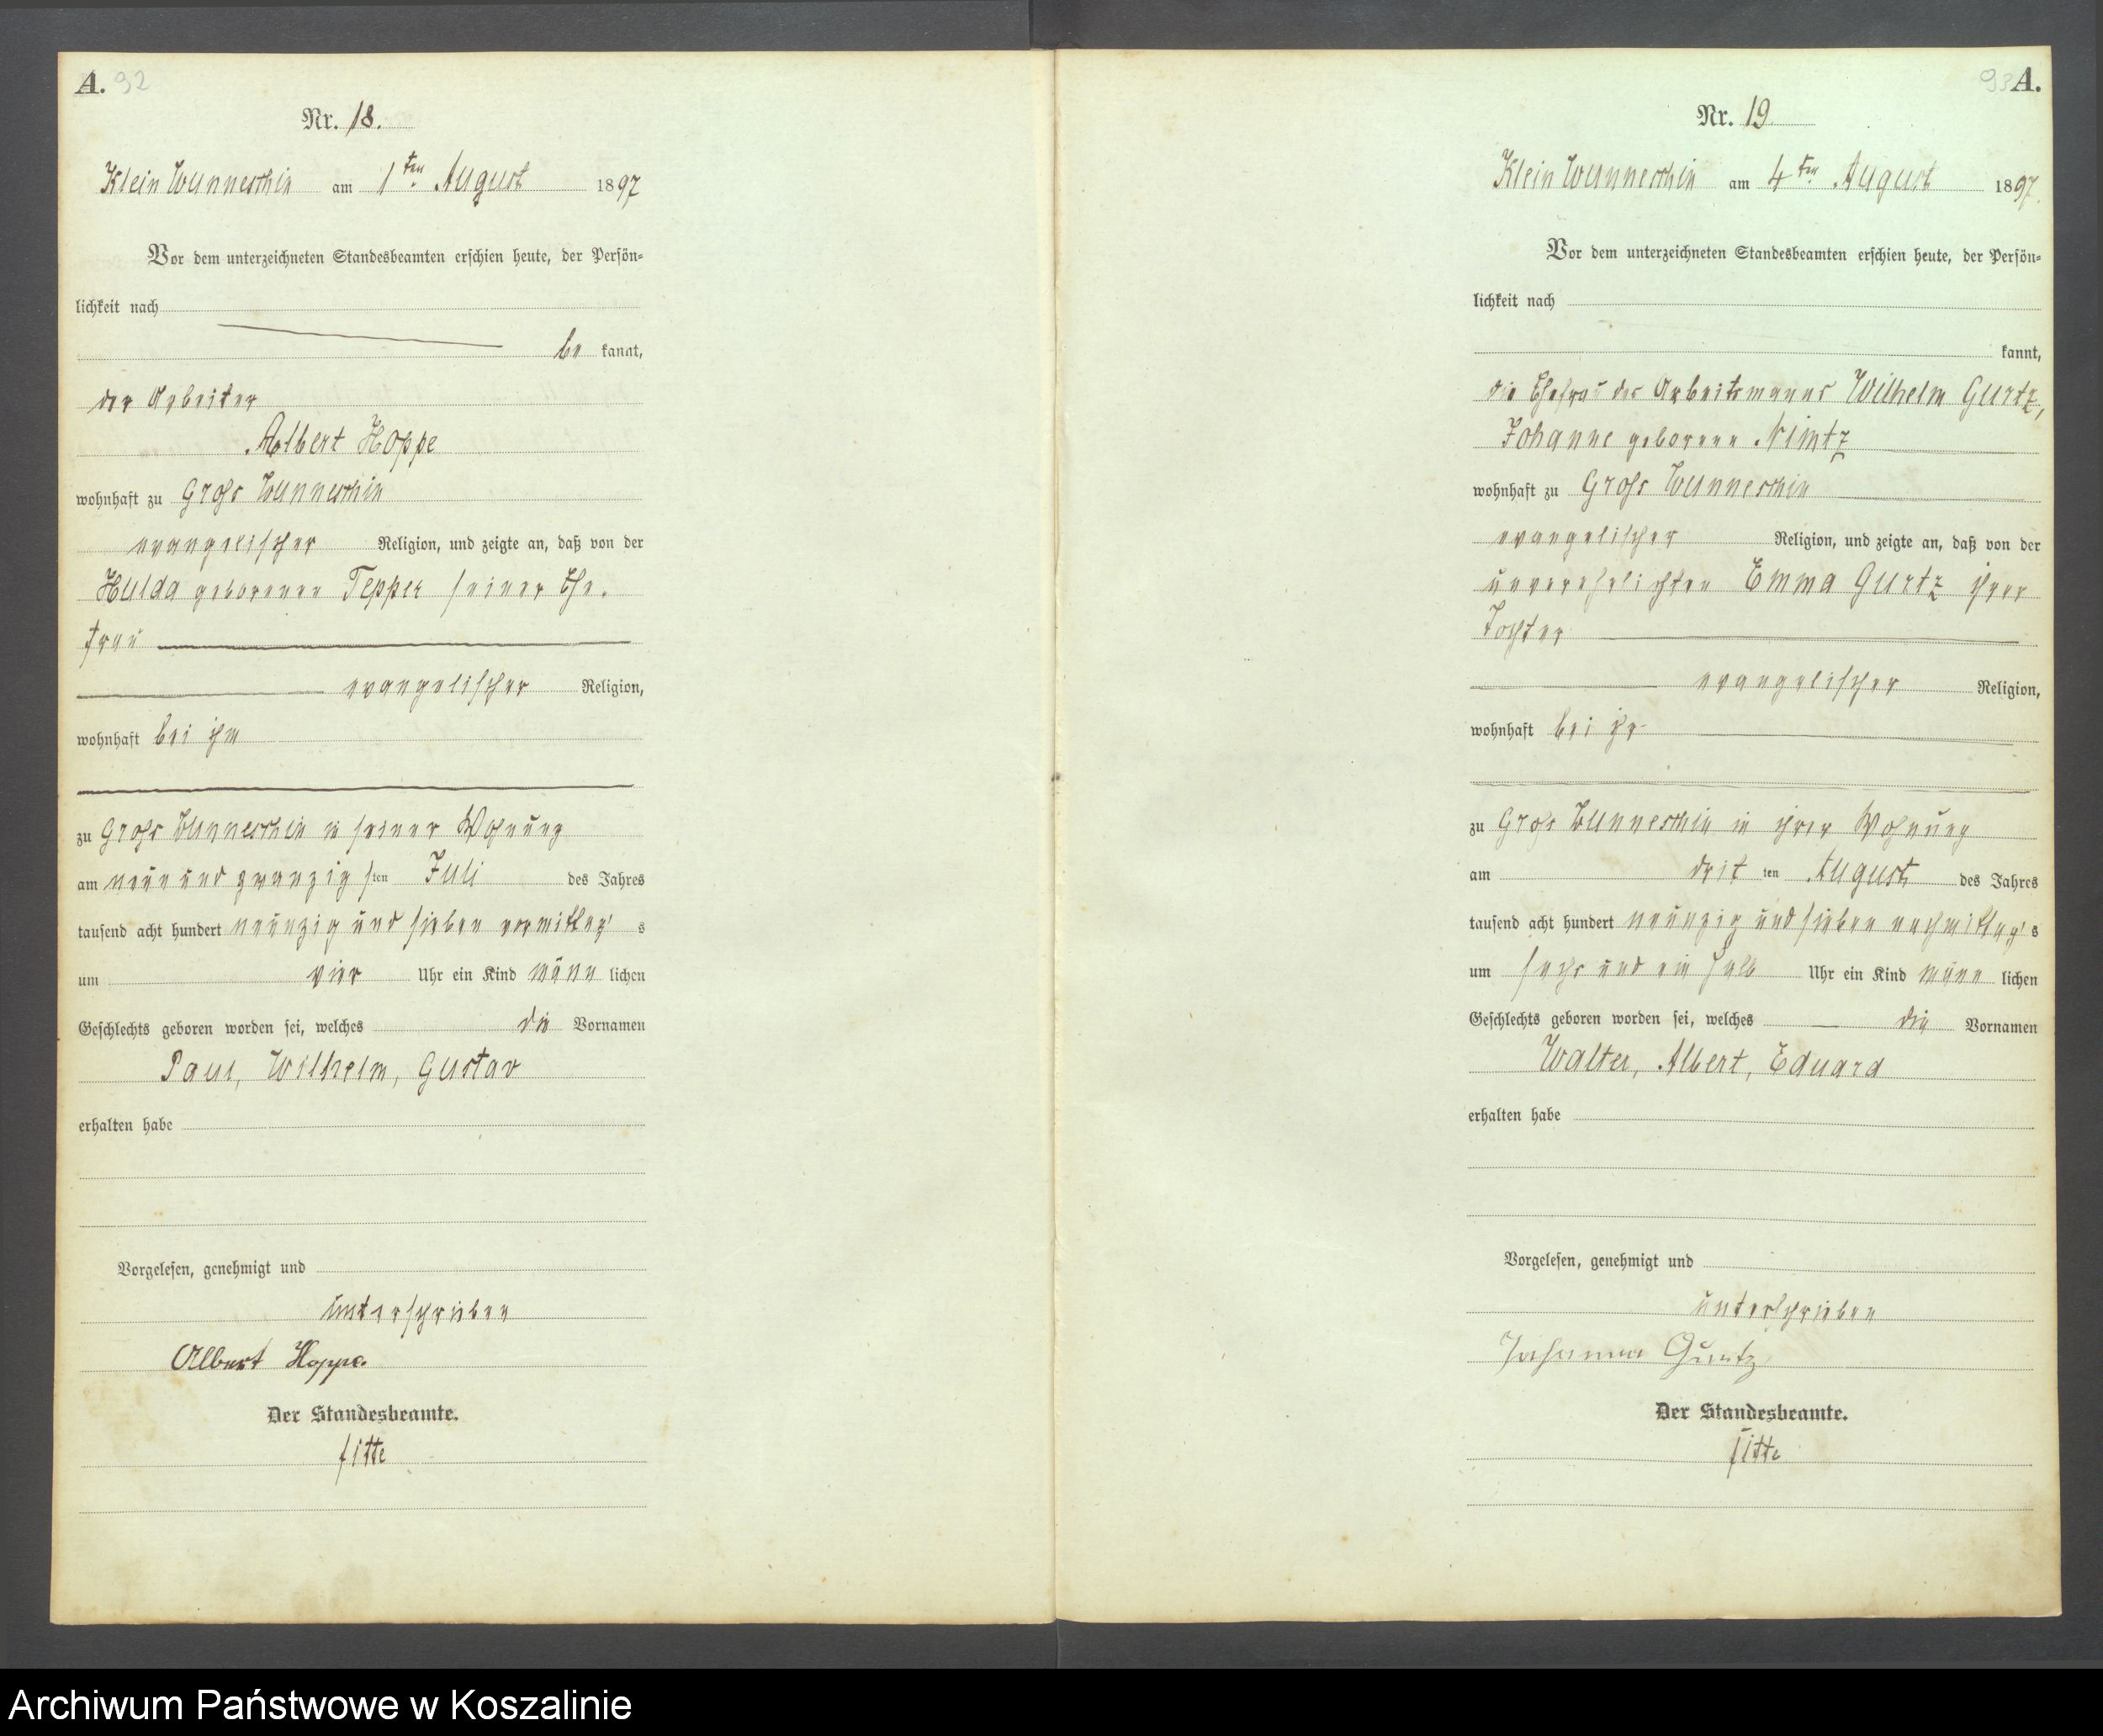 A. 92
Nr. 18.
Klein Wunneschin am 1ten August 1897
Vor dem unterzeichneten Standesbeamten erschien heute, der Persön=
lichkeit nach
be kannt,
der Arbeiter
Albert Hoppe
wohnhaft zu Groß Wunneschin
evangelischer Religion, und zeigte an, daß von der
Hulda geborenen Tepper seiner Ehe.
frau
evangelischer Religion,
wohnhaft bei ihm
zu Groß Wunneschin in seiner Wohnung
am neun und zwanzig sten Juli des Jahres
tausend acht hundert neunzig und sieben vormittag s
um vier Uhr ein Kind männ lichen
Geschlechts geboren worden sei, welches die Vornamen
Paul, Wilhelm, Gustav
erhalten habe
Vorgelesen, genehmigt und
unterschrieben
Albert Hoppe.
Der Standesbeamte.
93 A.
Nr. 19
Klein Wunneschin am 4ten August 1897.
Vor dem unterzeichneten Standesbeamten erschien heute, der Persön=
lichkeit nach
kannt,
die Ehefrau des Arbeitsmanns Wilhelm Gurtz,
Johanne geborene Nimtz
wohnhaft zu Groß Wunneschin
evangelischer Religion, und zeigte an, daß von der
unverehelichten Emma Gurtz ihrer
Tochter
evangelischer Religion,
wohnhaft bei ihr
zu Groß Wunneschin in ihrer Wohnung
am drit ten August des Jahres
tausend acht hundert neunzig und sieben nachmittag s
um sechs und ein halb Uhr ein Kind männ lichen
Geschlechts geboren worden sei, welches die Vornamen
Walter, Albert, Eduard
erhalten habe
Vorgelesen, genehmigt und
unterschrieben
Johanna Gurtz
Der Standesbeamte.
Archiwum Państwowe w Koszalinie